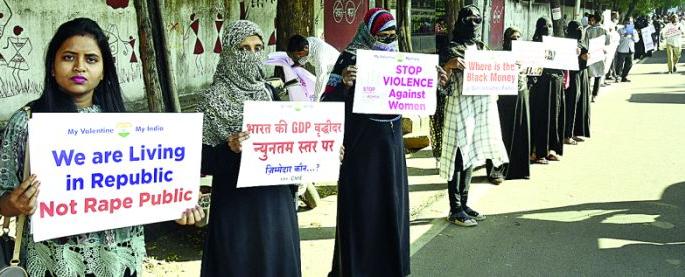 My Valentine My India
We are Living
in Republic
Not Rape Public
भारत की GDP वृद्धीदर
न्युनतम स्तर पर
ज़िम्मेदार कौन...?
My Valentine My India
STOP
VIOLENCE
Against
Women
Where is the
Black Money